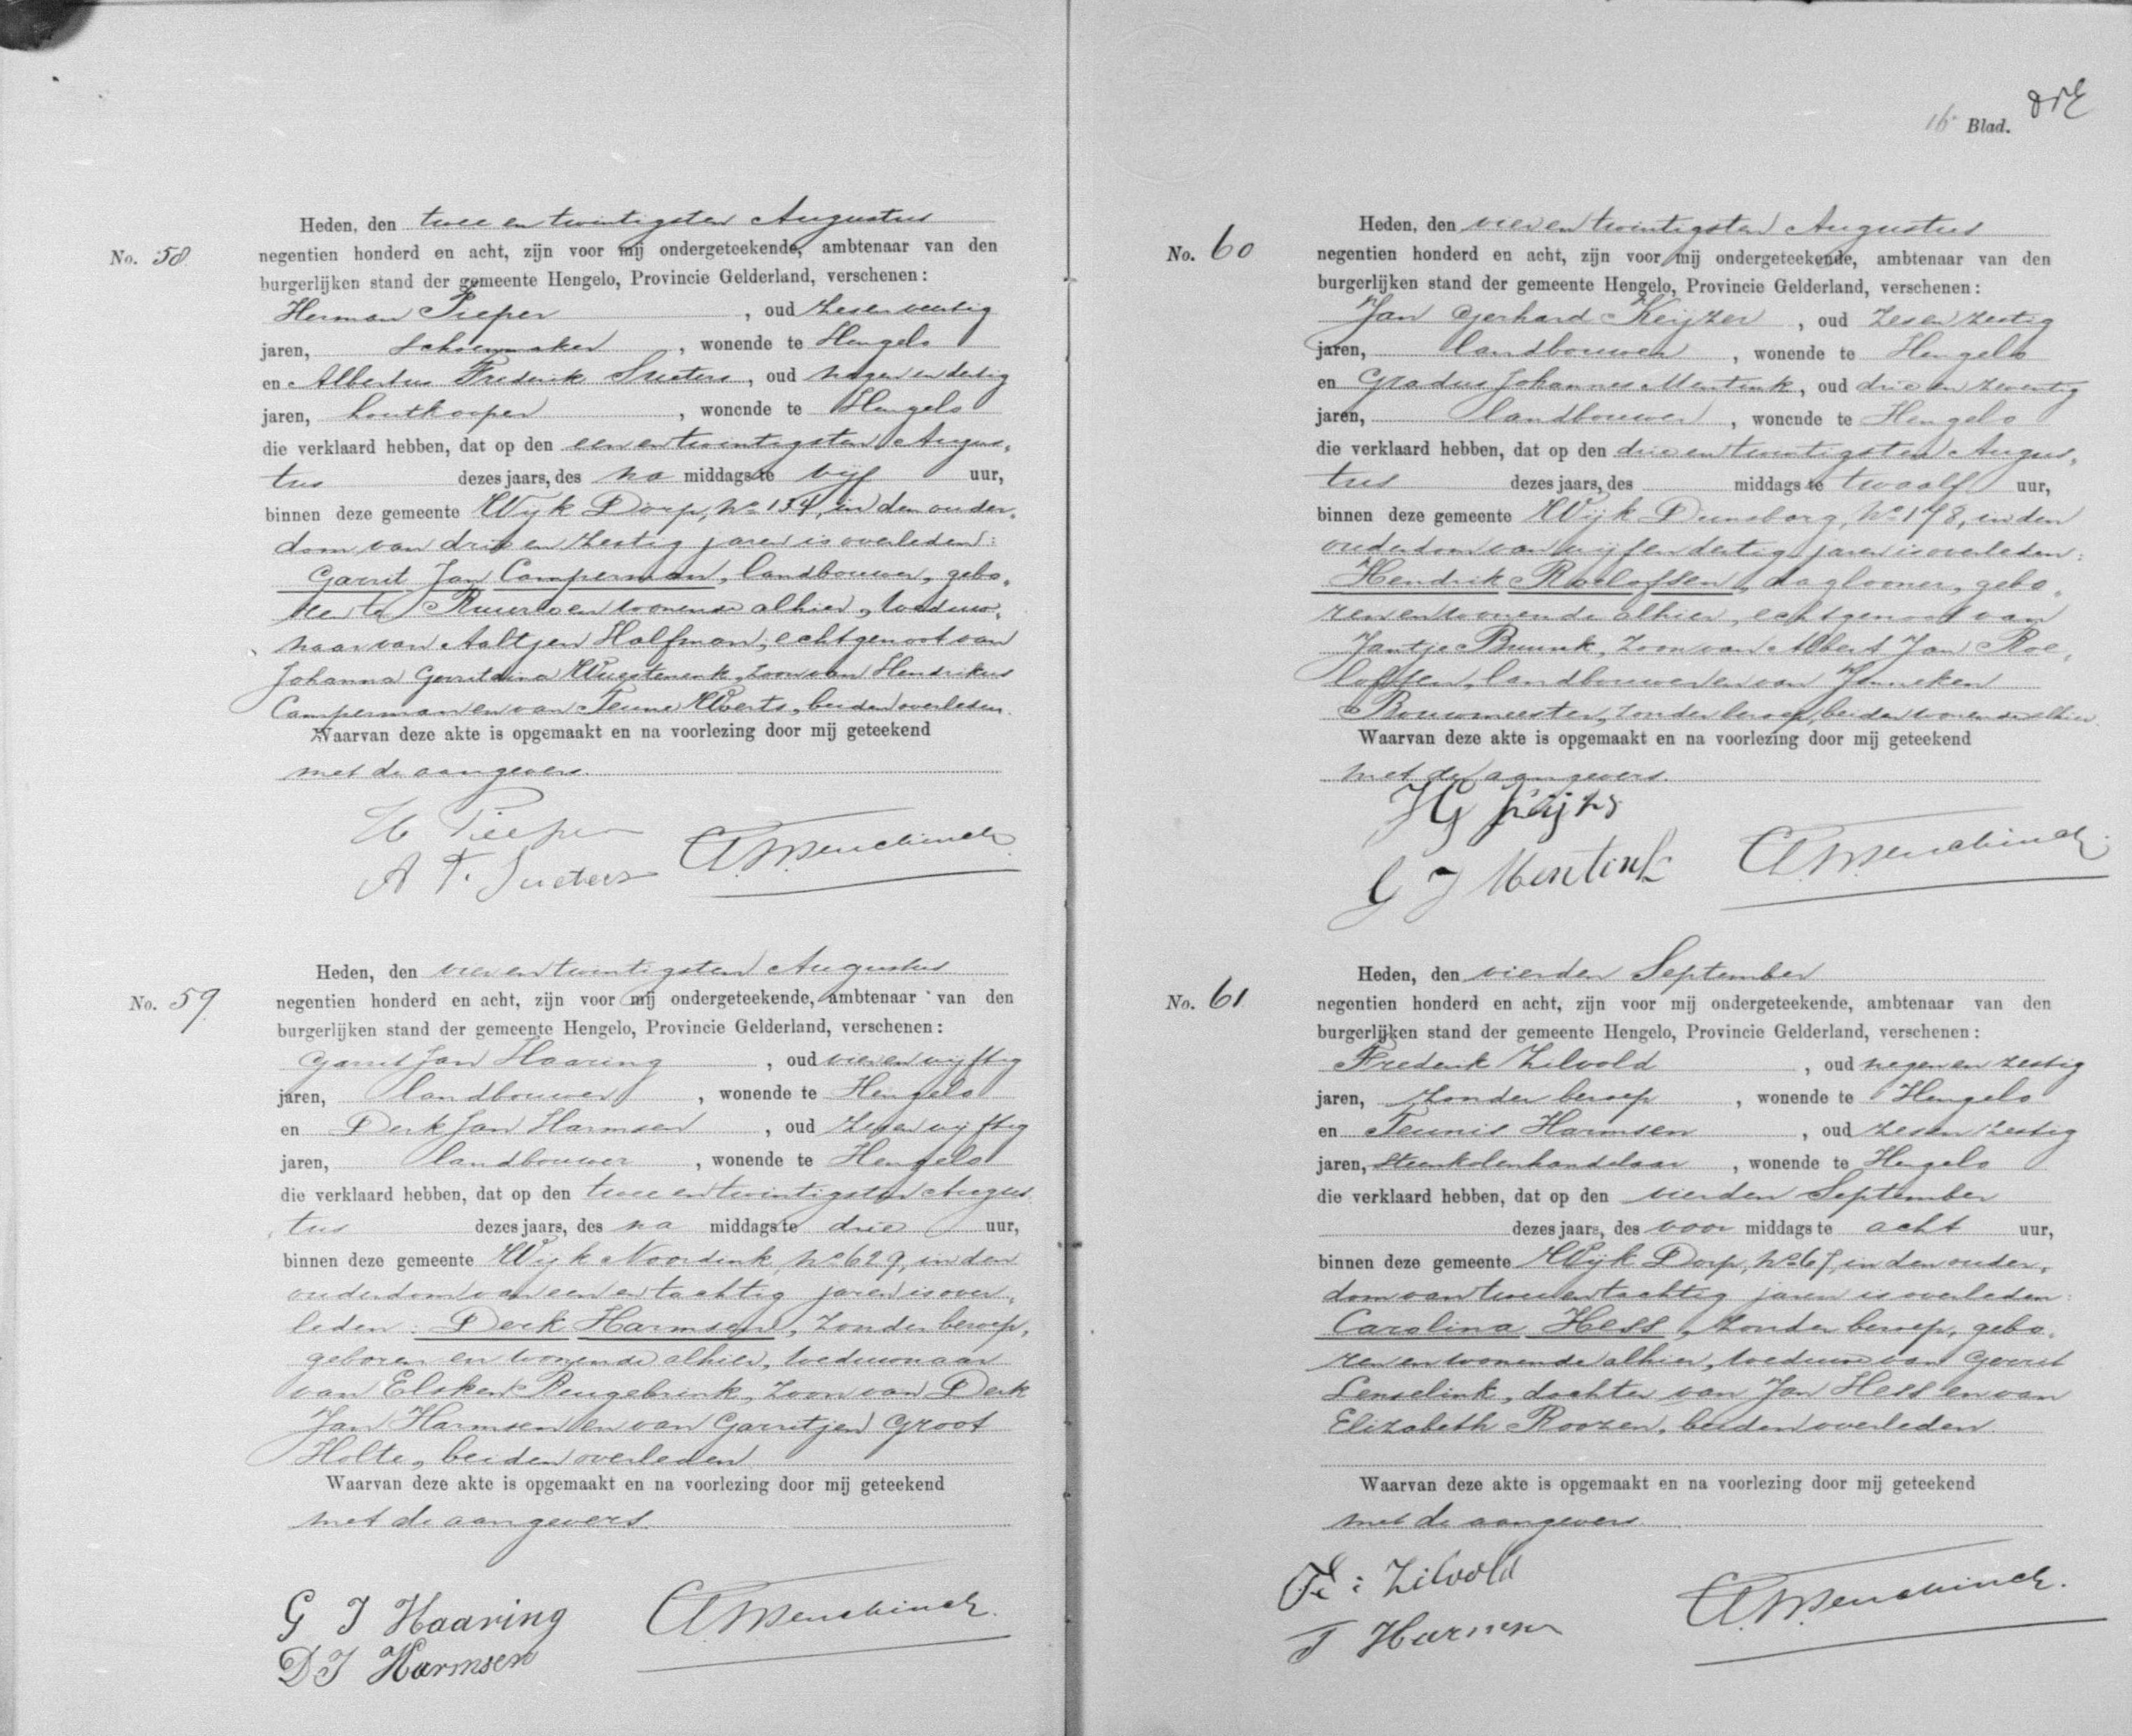 No. 58.
Heden, den twee en twintigsten Augustus
negentien honderd en acht, zijn voor mij ondergeteekende, ambtenaar van den
burgerlijken stand der gemeente Hengelo, Provincie Gelderland, verschenen:
Herman Pieper, oud zes en veertig
jaren, schoenmaker, wonende te Hengelo
en Albertus Frederik Sueters, oud negen en dertig
jaren, houtkooper, wonende te Hengelo
die verklaard hebben, dat op den een en twintigsten Augus-
tus dezes jaars, des na middags te vijf uur,
binnen deze gemeente Wijk Dorp, No 134, in den ouder-
dom van drie en zestig jaren is overleden:
Garrit Jan Camperman, landbouwer, gebo-
ren te Ruurlo en wonende alhier, weduw-
naar van Aaltjen Halfman, echtgenoot van
Johanna Gerritdina Wuestenenk, zoon van Hendrikus
Camperman en van Teune Weerts, beiden overleden.
Waarvan deze akte is opgemaakt en na voorlezing door mij geteekend
met de aangevers.
H Pieper
A. F. Sueters
No. 59.
Heden, den vier en twintigsten Augustus
negentien honderd en acht, zijn voor mij ondergeteekende, ambtenaar van den
burgerlijken stand der gemeente Hengelo, Provincie Gelderland, verschenen:
Garrit Jan Haaring, oud vier en vijftig
jaren, landbouwer, wonende te Hengelo
en Derk Jan Harmsen, oud zes en vijftig
jaren, landbouwer, wonende te Hengelo
die verklaard hebben, dat op den twee en twintigsten Augus-
tus dezes jaars, des na middags te drie uur,
binnen deze gemeente Wijk Noordink, No 629, in den
ouderdom van een en tachtig jaren is over-
leden: Derk Harmsen, zonder beroep,
geboren en wonende alhier, weduwnaar
van Elsken Reugebrink, zoon van Derk
Jan Harmsen en van Garritjen Groot
Holte, beiden overleden.
Waarvan deze akte is opgemaakt en na voorlezing door mij geteekend
met de aangevers.
G J Haaring
D J Harmsen
16e Blad.
No. 60
Heden, den vier en twintigsten Augustus
negentien honderd en acht, zijn voor mij ondergeteekende, ambtenaar van den
burgerlijken stand der gemeente Hengelo, Provincie Gelderland, verschenen:
Jan Gerhard Keijzer, oud zes en zestig
jaren, landbouwer, wonende te Hengelo
en Gradus Johannes Mentink, oud drie en zeventig
jaren, landbouwer, wonende te Hengelo
die verklaard hebben, dat op den drie en twintigsten Augus-
tus dezes jaars, des middags te twaalf uur,
binnen deze gemeente Wijk Dunsborg, No 178, in den
ouderdom van vijf en dertig jaren is overleden:
Hendrik Roelofsen, daglooner, gebo-
ren en wonende alhier, echtgenoot van
Jantje Buunk, zoon van Albert Jan Roe-
lofsen, landbouwer en van Janneken
Bouwmeester, zonder beroep, beiden wonende alhier.
Waarvan deze akte is opgemaakt en na voorlezing door mij geteekend
met de aangevers.
G J Mentink
No. 61.
Heden, den vierden September
negentien honderd en acht, zijn voor mij ondergeteekende, ambtenaar van den
burgerlijken stand der gemeente Hengelo, Provincie Gelderland, verschenen:
Frederik Zilvold, oud negen en zestig
jaren, zonder beroep, wonende te Hengelo
en Teunis Harmsen, oud zes en zestig
jaren, steenkolenhandelaar, wonende te Hengelo
die verklaard hebben, dat op den vierden September
dezes jaars, des voor middags te acht uur,
binnen deze gemeente Wijk Dorp, No 67, in den ouder-
dom van twee en tachtig jaren is overleden:
Carolina Hess, zonder beroep, gebo-
ren en wonende alhier, weduwe van Gerrit
Lenselink, dochter van Jan Hess en van
Elizabeth Roozen, beiden overleden.
Waarvan deze akte is opgemaakt en na voorlezing door mij geteekend
met de aangevers.
F: Zilvold
T Harmsen